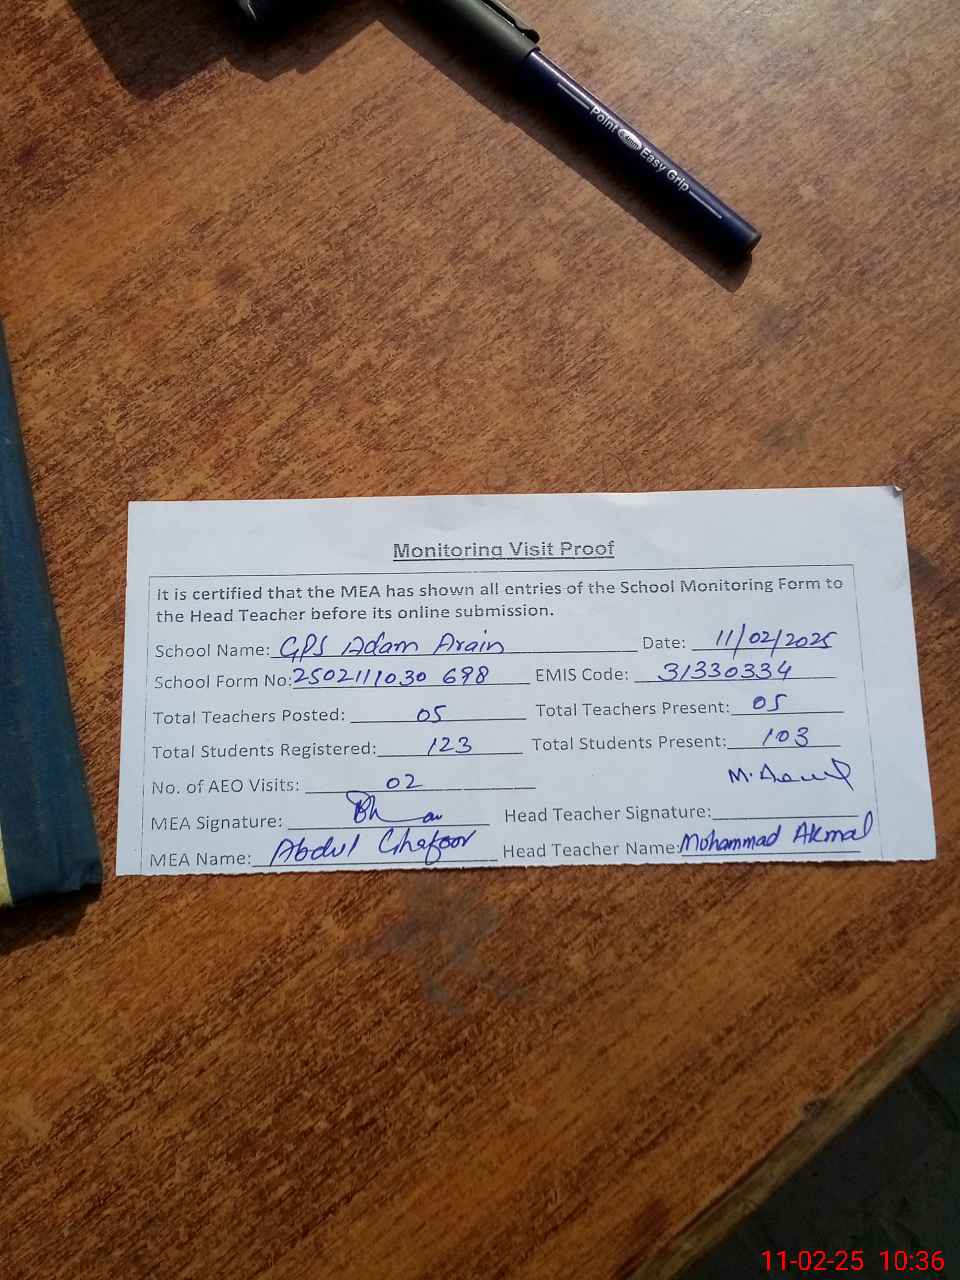 Point 0.4mm Easy Grip
Monitoring Visit Proof
It is certified that the MEA has shown all entries of the School Monitoring Form to
the Head Teacher before its online submission.
School Name: GPS Adam Arain Date: 11/02/2025
School Form No: 2502111030 698 EMIS Code: 31330334
Total Teachers Posted: 05 Total Teachers Present: 05
Total Students Registered: 123 Total Students Present: 103
No. of AEO Visits: 02
MEA Signature: Head Teacher Signature:
MEA Name: Abdul Ghafoor Head Teacher Name: Mohammad Akmal
11-02-25 10:36